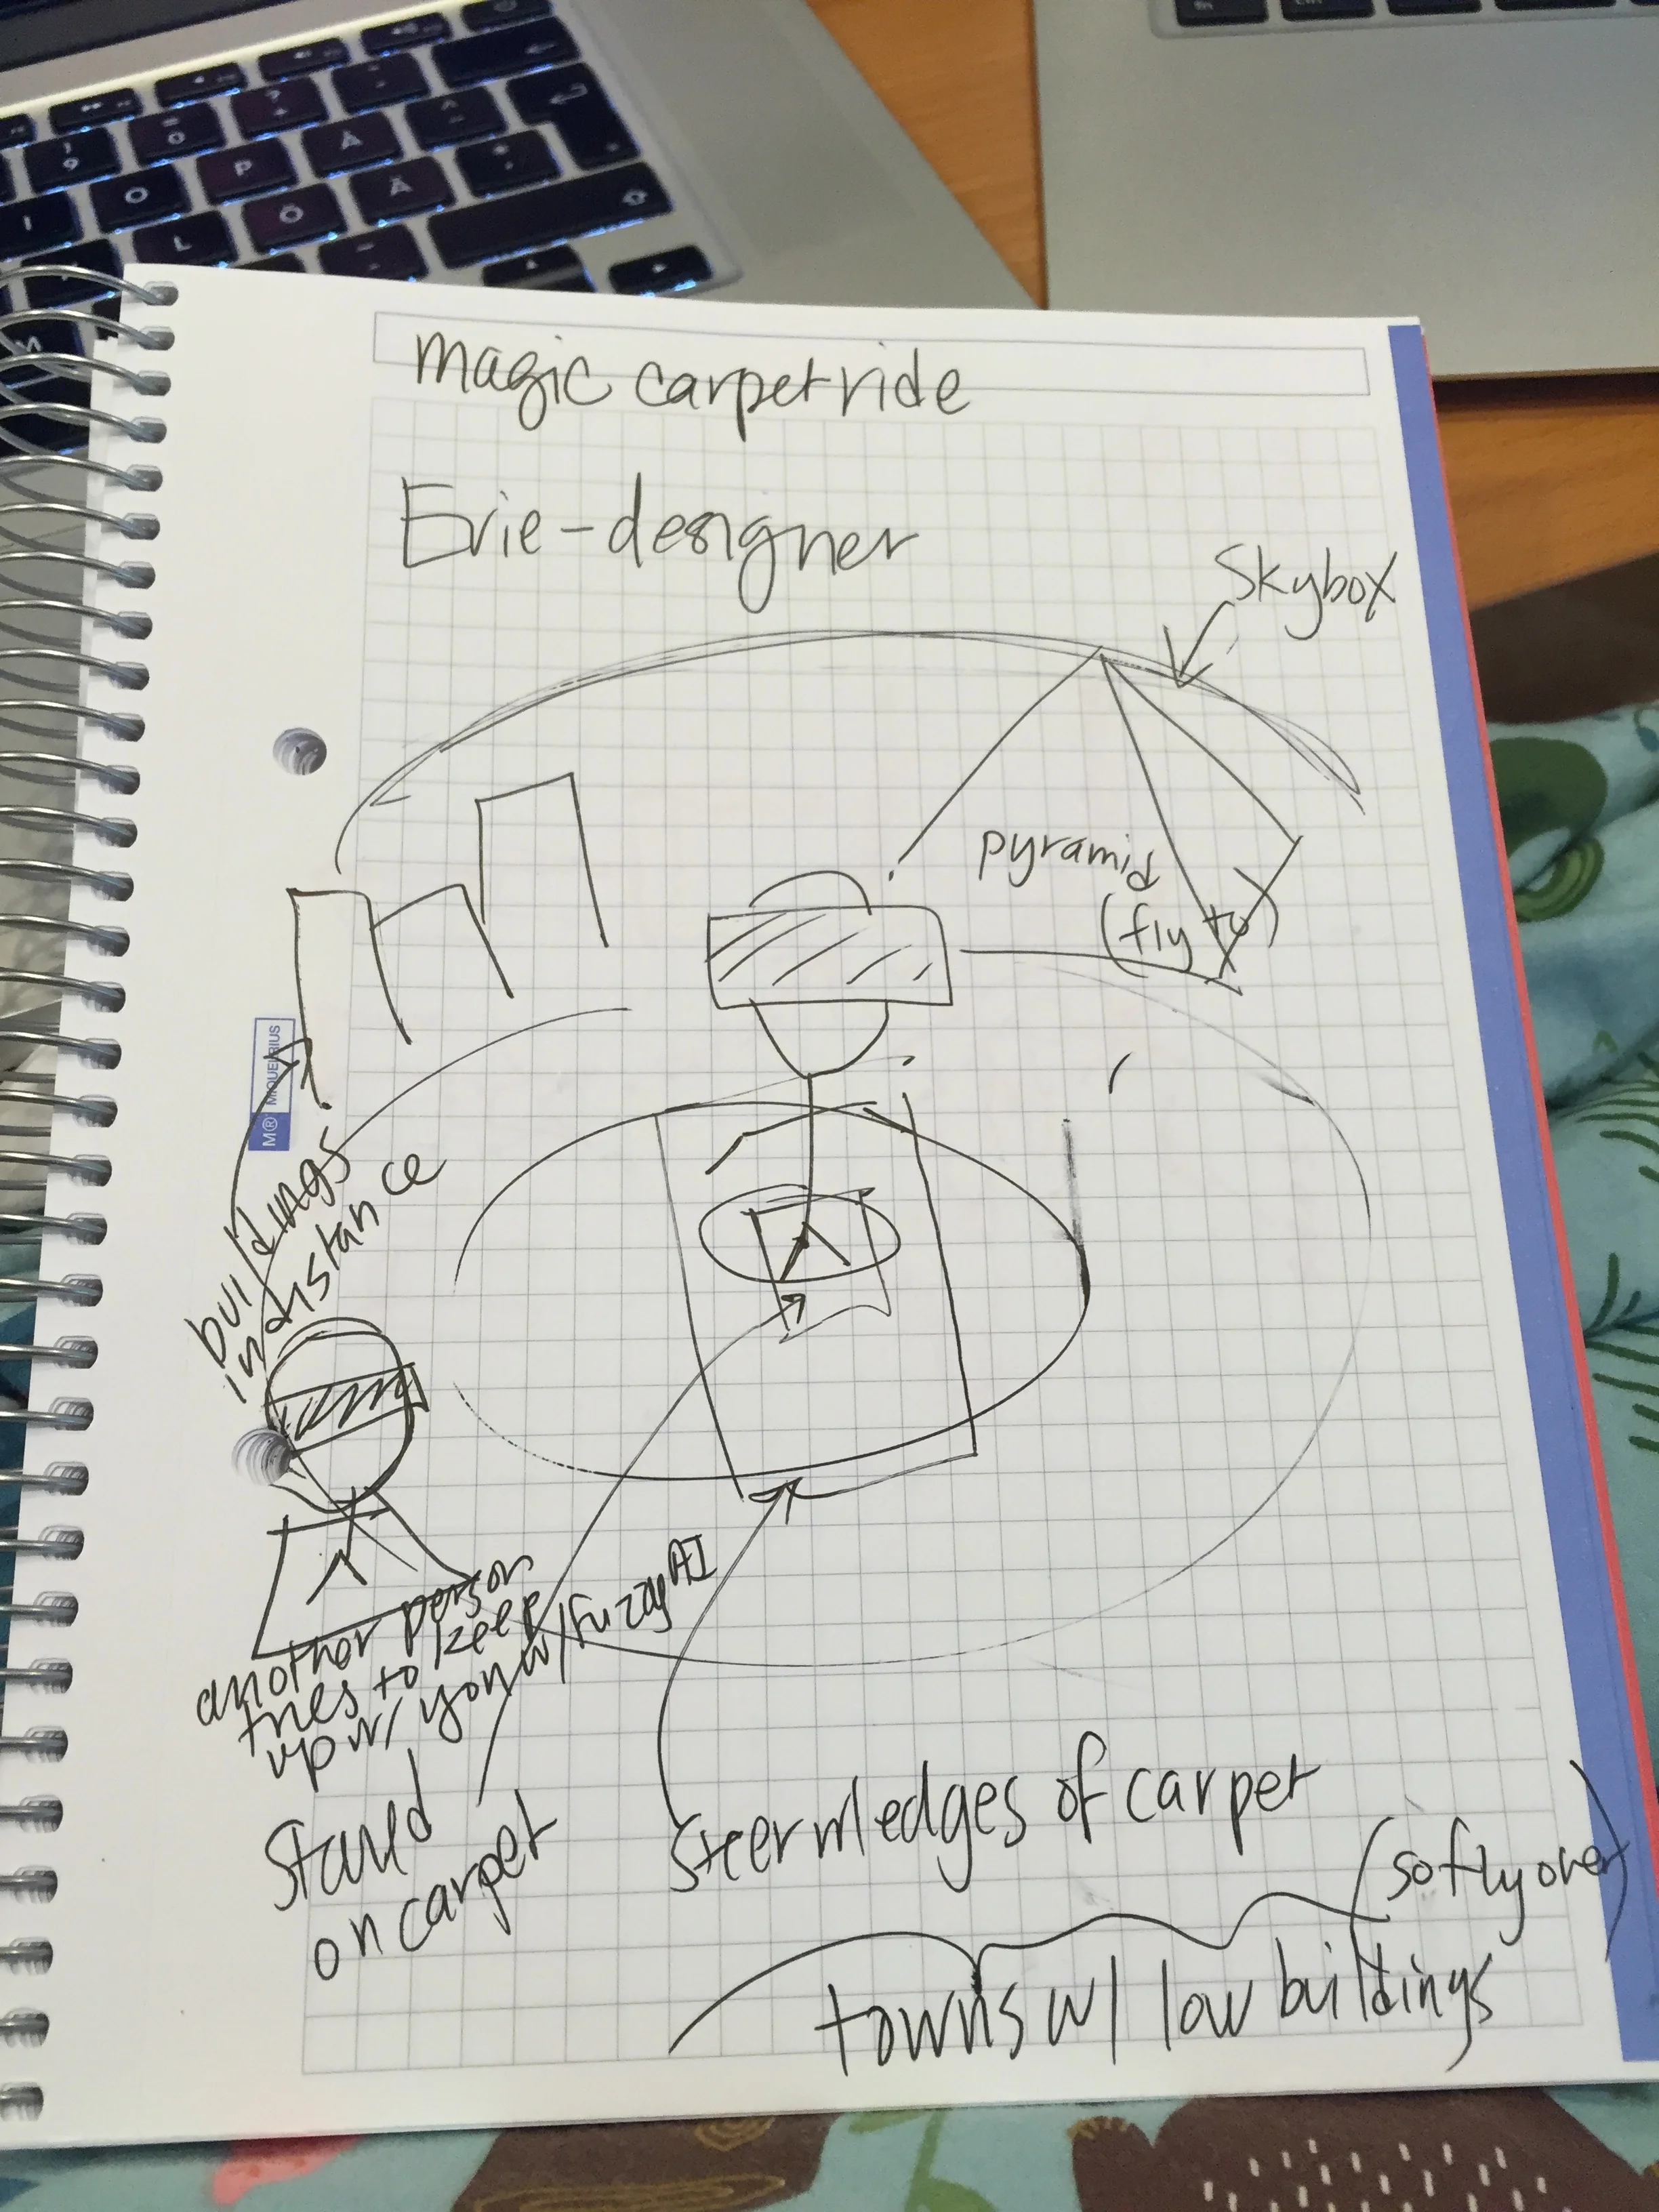 magic carpet ride
Evie - designer
Skybox
pyramid
(fly to)
M® MIQUELRIUS
buildings
in distance
another person
tries to keep
up w/ you w/ fuzzy AI
Stand
on carpet
Steer w/ edges of carpet
(so fly over)
towns w/ low buildings
9
O
P
Å
I
O
L
Ö
Ä
M
fn